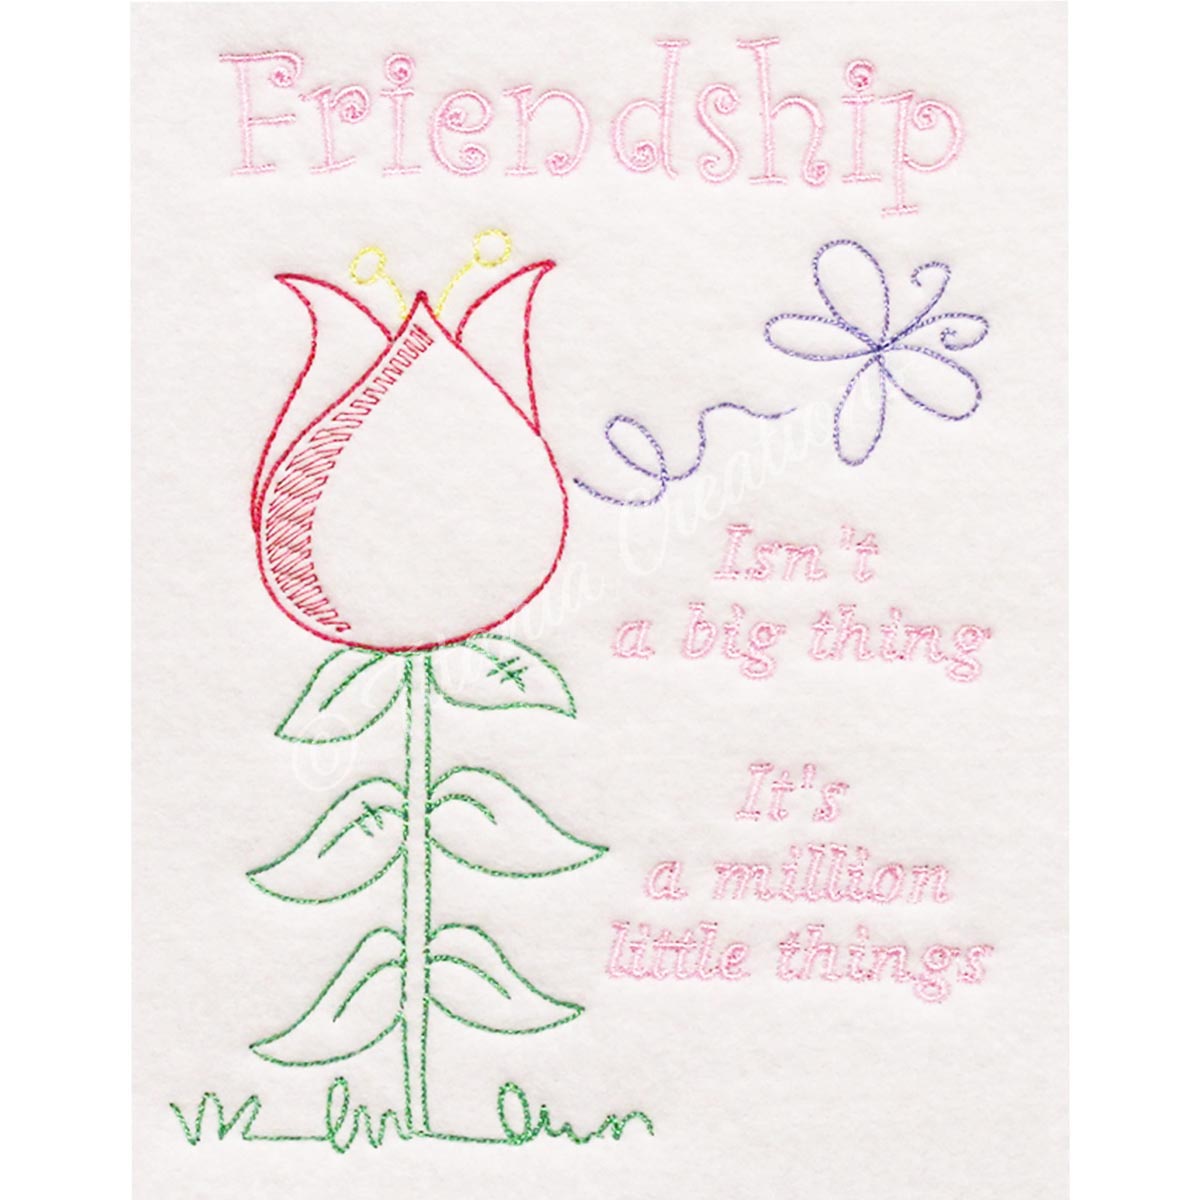 Friendship
Isn't
a big thing
It's
a million
little things